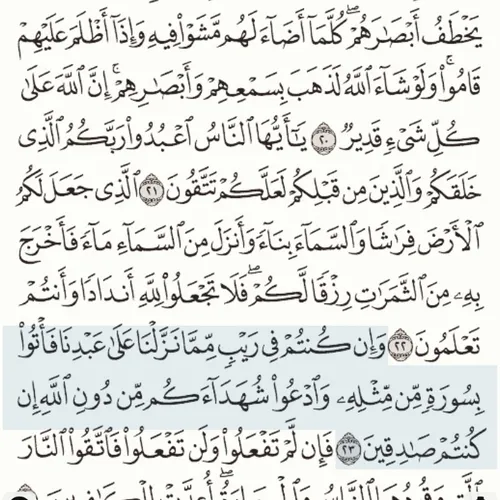 يَخْطَفُ أَبْصَٰرَهُمْ ۖ كُلَّمَآ أَضَآءَ لَهُم مَّشَوْا۟ فِيهِ وَإِذَآ أَظْلَمَ عَلَيْهِمْ
قَامُوا۟ ۚ وَلَوْ شَآءَ ٱللَّهُ لَذَهَبَ بِسَمْعِهِمْ وَأَبْصَٰرِهِمْ ۚ إِنَّ ٱللَّهَ عَلَىٰ
كُلِّ شَىْءٍ قَدِيرٌ ٢٠ يَٰٓأَيُّهَا ٱلنَّاسُ ٱعْبُدُوا۟ رَبَّكُمُ ٱلَّذِى
خَلَقَكُمْ وَٱلَّذِينَ مِن قَبْلِكُمْ لَعَلَّكُمْ تَتَّقُونَ ٢١ ٱلَّذِى جَعَلَ لَكُمُ
ٱلْأَرْضَ فِرَٰشًا وَٱلسَّمَآءَ بِنَآءً وَأَنزَلَ مِنَ ٱلسَّمَآءِ مَآءً فَأَخْرَجَ
بِهِۦ مِنَ ٱلثَّمَرَٰتِ رِزْقًا لَّكُمْ ۖ فَلَا تَجْعَلُوا۟ لِلَّهِ أَندَادًا وَأَنتُمْ
تَعْلَمُونَ ٢٢ وَإِن كُنتُمْ فِى رَيْبٍ مِّمَّا نَزَّلْنَا عَلَىٰ عَبْدِنَا فَأْتُوا۟
بِسُورَةٍ مِّن مِّثْلِهِۦ وَٱدْعُوا۟ شُهَدَآءَكُم مِّن دُونِ ٱللَّهِ إِن
كُنتُمْ صَٰدِقِينَ ٢٣ فَإِن لَّمْ تَفْعَلُوا۟ وَلَن تَفْعَلُوا۟ فَٱتَّقُوا۟ ٱلنَّارَ